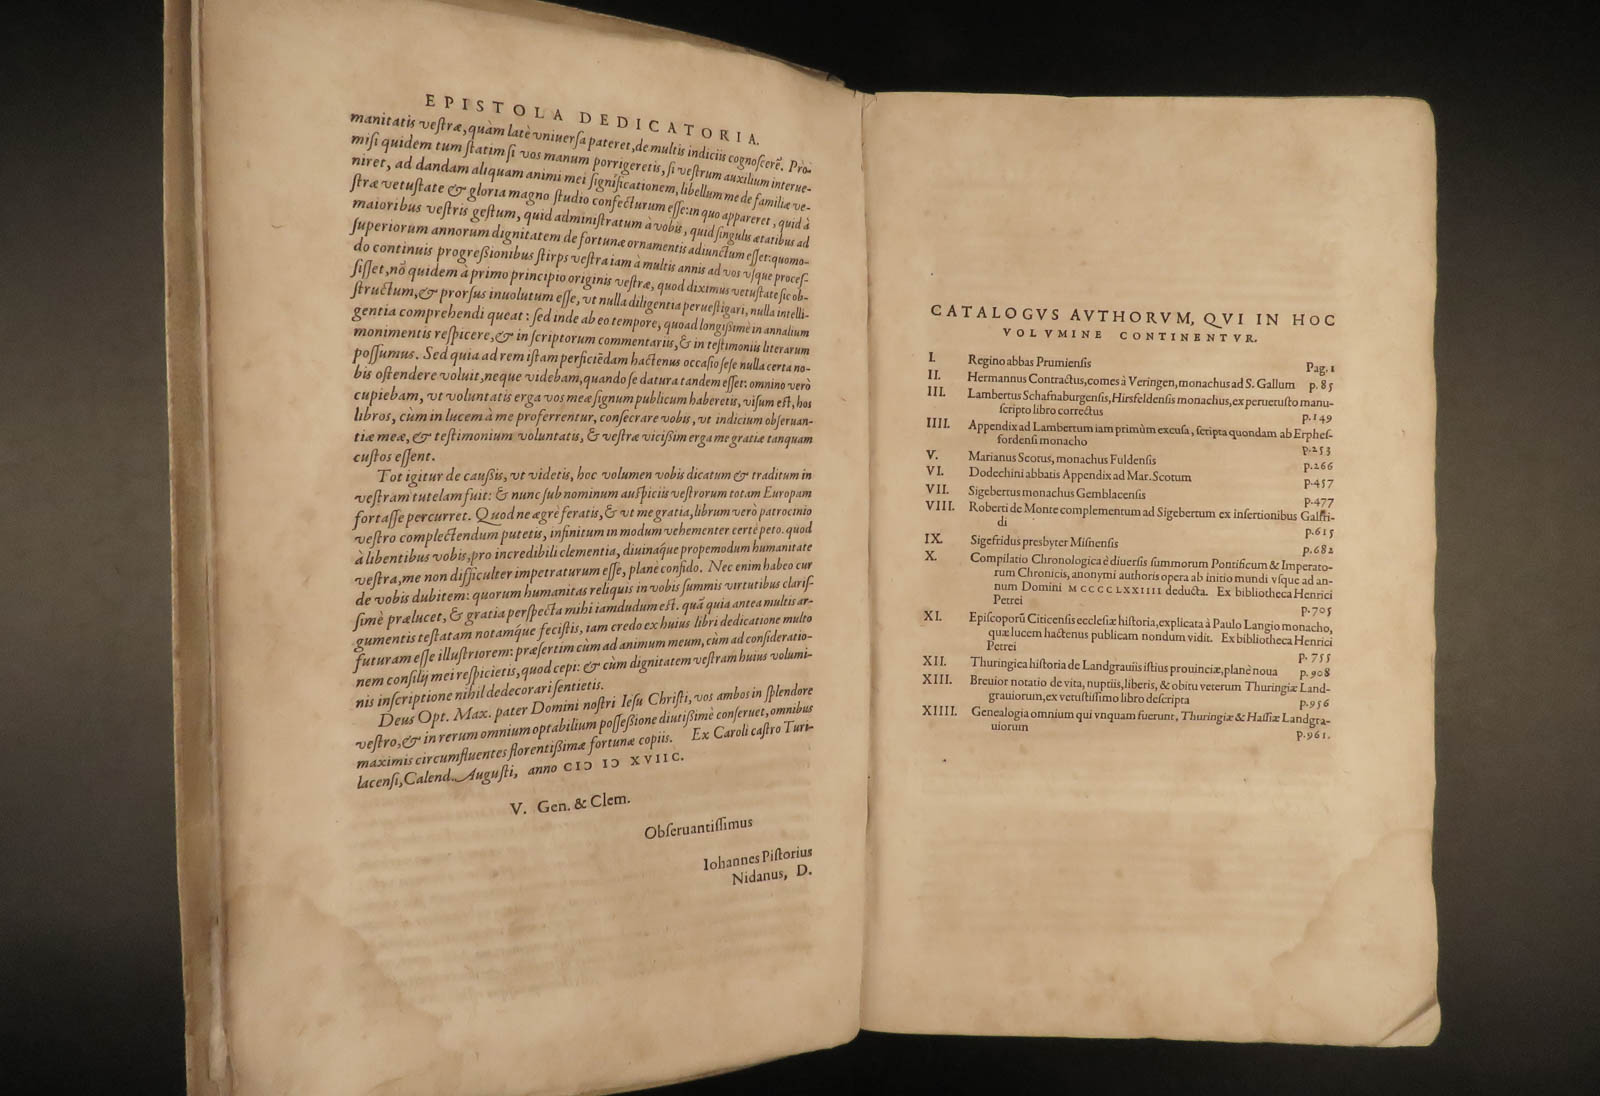 EPISTOLA DEDICATORIA.
manitatis vestræ, quàm latè vniuersa pateret, de multis indiciis cognoscerē. Pro-
misi quidem tum statim si vos manum porrigeretis, si vestrum auxilium interue-
niret, ad dandam aliquam animi mei significationem, libellum me de familiæ ve-
stræ vetustate & gloria magno studio confecturum esse: in quo appareret, quid à
maioribus vestris gestum, quid administratum à vobis, quid singulis ætatibus ad
superiorum annorum dignitatem de fortunæ ornamentis adiunctum esset: quomo-
do continuis progreßionibus stirps vestra iam à multis annis ad vos vsque proces-
sisset, nō quidem à primo principio originis vestræ, quod diximus vetustate sic ob-
structum, & prorsus inuolutum esse, vt nulla diligentia peruestigari, nulla intelli-
gentia comprehendi queat: sed inde ab eo tempore, quoad longißimè in annalium
monimentis respicere, & in scriptorum commentariis, & in testimoniis literarum
possumus. Sed quia ad rem istam perficiēdam hactenus occasio sese nulla certa no-
bis ostendere voluit, neque videbam, quando se datura tandem esset: omnino verò
cupiebam, vt voluntatis erga vos meæ signum publicum haberetis, visum est, hos
libros, cùm in lucem à me proferrentur, consecrare vobis, vt indicium obseruan-
tiæ meæ, & testimonium voluntatis, & vestræ vicißim erga me gratiæ tanquam
custos essent.
Tot igitur de caußis, vt videtis, hoc volumen vobis dicatum & traditum in
vestram tutelam fuit: & nunc sub nominum auspiciis vestrorum totam Europam
fortasse percurret. Quod ne ægrè feratis, & vt me gratia, librum verò patrocinio
vestro complectendum putetis, infinitum in modum vehementer certè peto. quod
à libentibus vobis, pro incredibili clementia, diuinaq́ue propemodum humanitate
vestra, me non difficulter impetraturum esse, planè confido. Nec enim habeo cur
de vobis dubitem: quorum humanitas reliquis in vobis summis virtutibus claris-
simè prælucet, & gratia perspecta mihi iamdudum est. quā quia antea multis ar-
gumentis testatam notamq́ue fecistis, iam credo ex huius libri dedicatione multo
futuram esse illustriorem: præsertim cùm ad animum meum, cùm ad consideratio-
nem consilij mei respicietis, quod cepi: & cùm dignitatem vestram huius volumi-
nis inscriptione nihil dedecorari sentietis.
Deus Opt. Max. pater Domini nostri Iesu Christi, vos ambos in splendore
vestro, & in rerum omnium optabilium possessione diutißimè conseruet, omnibus
maximis circumfluentes florentißimæ fortunæ copiis. Ex Caroli castro Turi-
lacensi, Calend. Augusti, anno CIƆ IƆ XVIIC.
V. Gen. & Clem.
Obseruantissimus
Iohannes Pistorius
Nidanus, D.
CATALOGVS AVTHORVM, QVI IN HOC
VOLVMINE CONTINENTVR.
I. Regino abbas Prumiensis Pag. 1
II. Hermannus Contractus, comes à Veringen, monachus ad S. Gallum p. 85
III. Lambertus Schafnaburgensis, Hirsfeldensis monachus, ex peruetusto manu-
scripto libro correctus p. 149
IIII. Appendix ad Lambertum iam primùm excusa, scripta quondam ab Erphes-
fordensi monacho p. 253
V. Marianus Scotus, monachus Fuldensis p. 266
VI. Dodechini abbatis Appendix ad Mar. Scotum p. 457
VII. Sigebertus monachus Gemblacensis p. 477
VIII. Roberti de Monte complementum ad Sigebertum ex insertionibus Galfri-
di p. 615
IX. Sigefridus presbyter Misnensis p. 682
X. Compilatio Chronologica è diuersis summorum Pontificum & Imperato-
rum Chronicis, anonymi authoris opera ab initio mundi vsque ad an-
num Domini MCCCCLXXIIII deducta. Ex bibliotheca Henrici
Petrei p. 705
XI. Episcoporū Citicensis ecclesiæ historia, explicata à Paulo Langio monacho,
quæ lucem hactenus publicam nondum vidit. Ex bibliotheca Henrici
Petrei p. 755
XII. Thuringica historia de Landgrauiis istius prouinciæ, planè noua p. 908
XIII. Breuior notatio de vita, nuptiis, liberis, & obitu veterum Thuringiæ Land-
grauiorum, ex vetustissimo libro descripta p. 956
XIIII. Genealogia omnium qui vnquam fuerunt, Thuringiæ & Hassiæ Landgra-
uiorum p. 961.